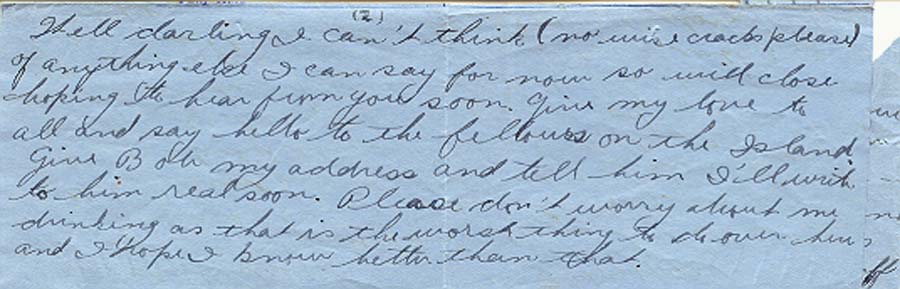 (2)
Well darling I can't think (no wise cracks please)
of anything else I can say for now so will close
hoping to hear from you soon. Give my love to
all and say hello to the fellows on the Island
Give Bob my address and tell him I'll write
to him real soon. Please don't worry about me
drinking as that is the worst thing to do over here
and I hope I know better than that.